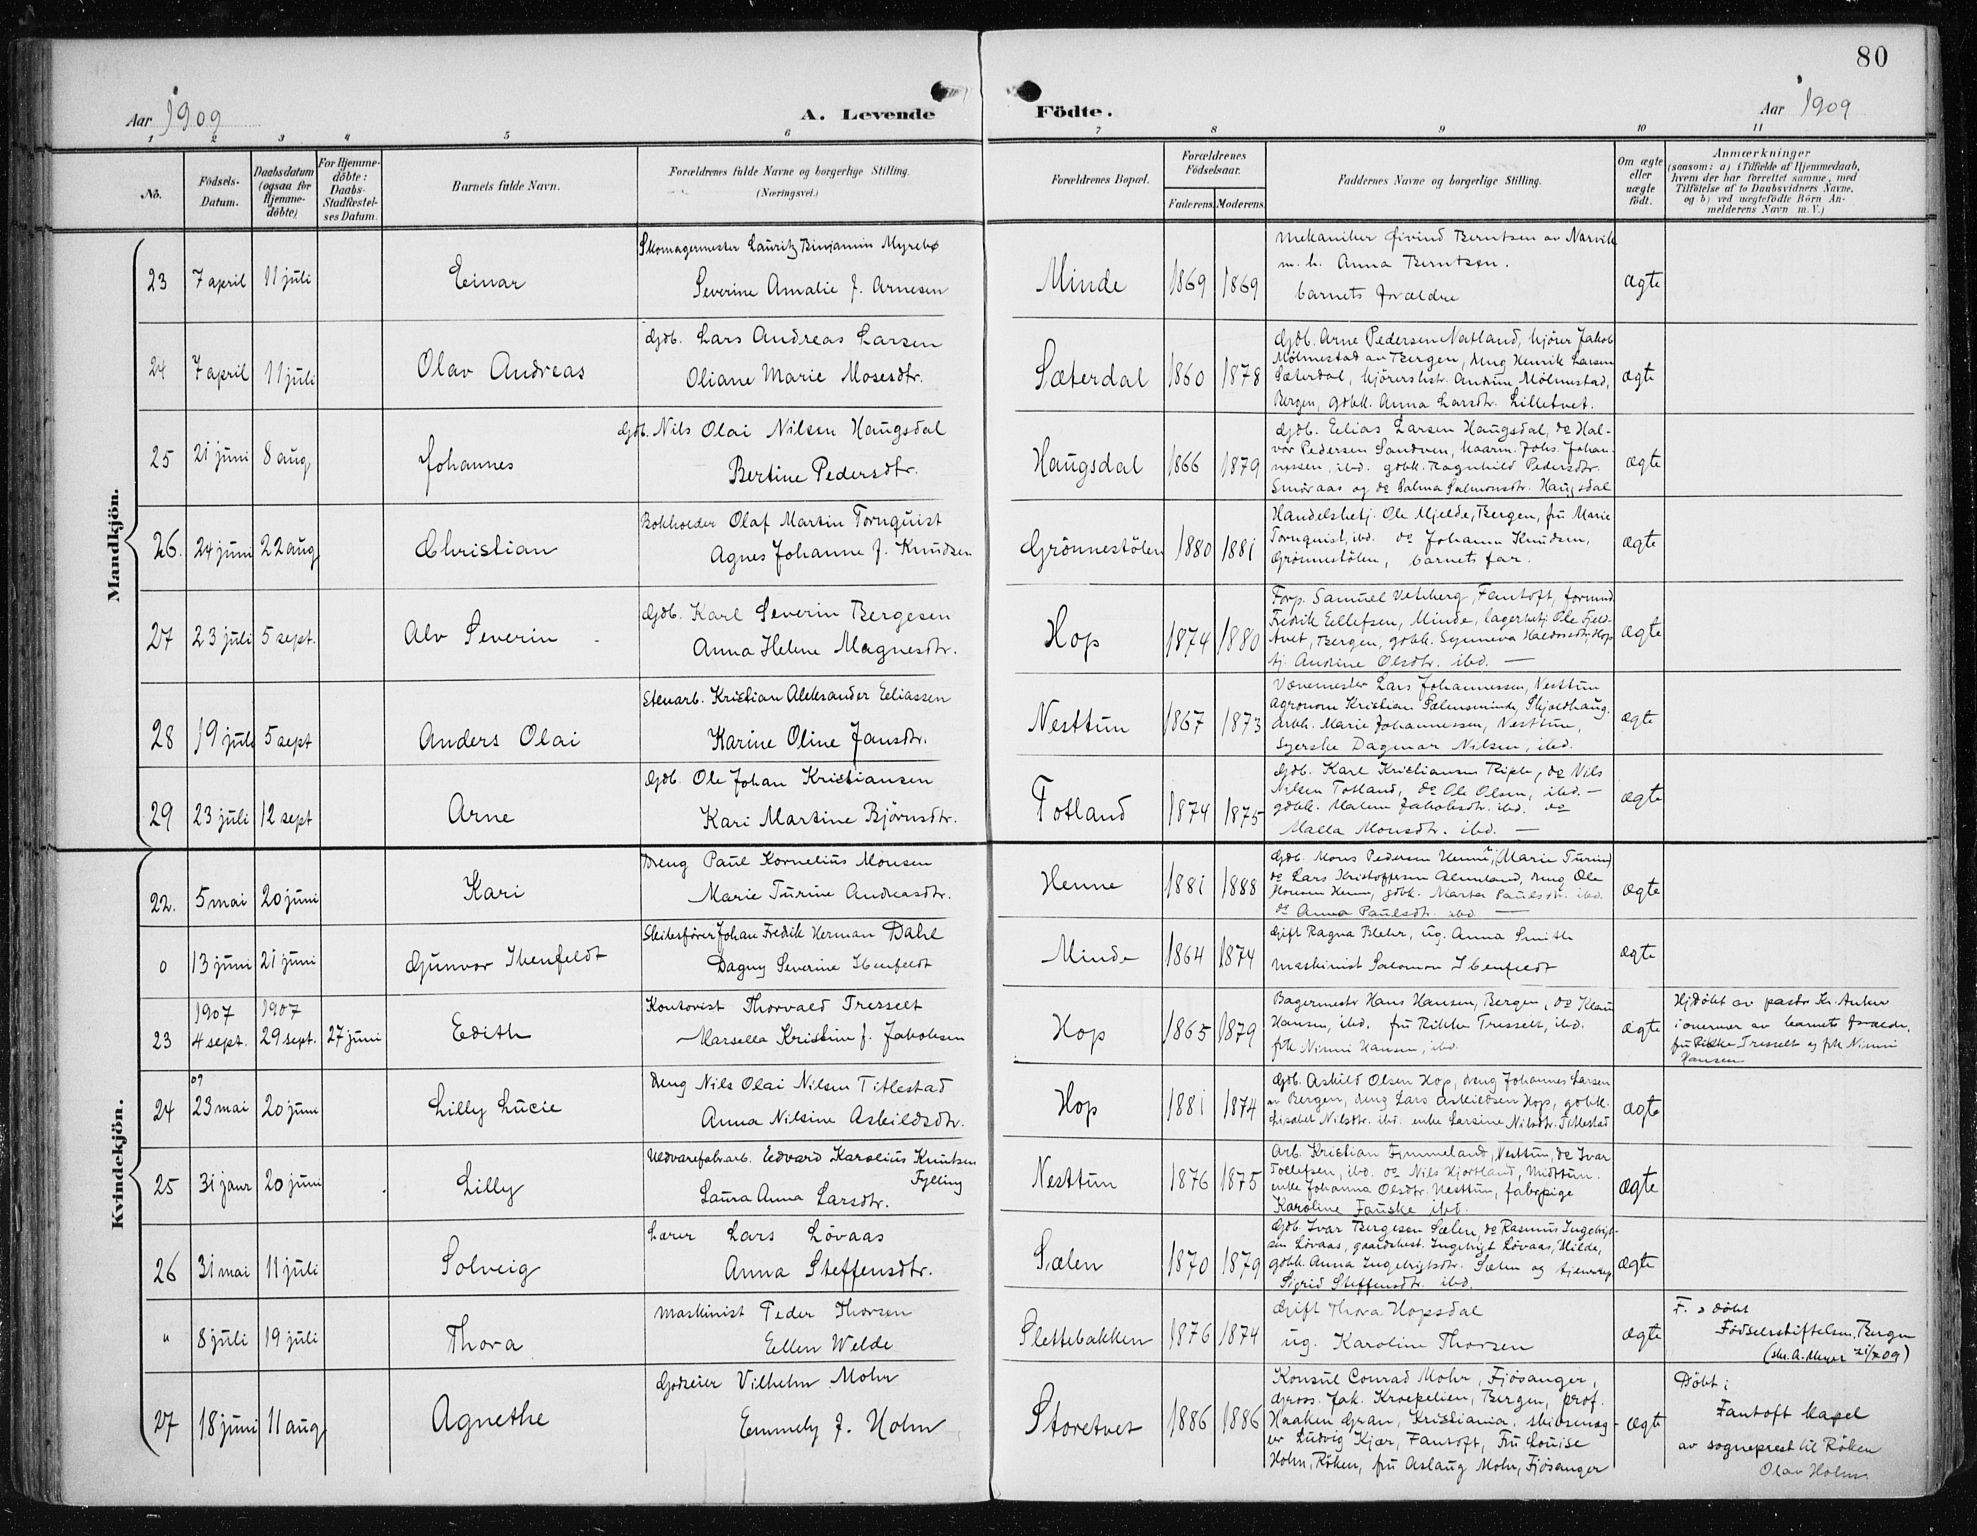 80
Aar 1909
A. Levende
Födte.
Aar 1909
1 2 3 4 5 6 7 8 9 10 11
No.
Födsels-Datum.
Daabsdatum (ogsaa for Hjemme-döbte)
For Hjemme-döbte: Daabs-Stadfæstel-ses Datum.
Barnets fulde Navn.
Forældrenes fulde Navne og borgerlige Stilling. (Næringsvei.)
Forældrenes Bopæl.
Forældrenes Födselsaar.
Faderens. Moderens.
Faddernes Navne og borgerlige Stilling.
Om ægte eller uægte födt.
Anmærkninger
(saasom: a) i Tilfælde af Hjemmedaab, hvem der har forrettet samme, med Tilföielse af to Daabsvidners Navne, og b) ved uægtefödte Börn An-melderens Navn m. V.)
Mandkjön.
23 7 april 11 juli Einar
Skomagermester Lauritz Binjamin Myrebø
Severine Amalie f. Arnesen
Minde 1869 1869
Mekaniker Øivind Berntsen av Narvik
m. h. Anna Berntsen.
barnets forældre
ægte
24 7 april 11 juli Olav Andreas
Gdb. Lars Andreas Larsen
Oliane Marie Mosesdtr.
Sæterdal 1860 1878
Gdb. Arne Pedersen Natland, kjører Jakob
Mölmestad av Bergen, dreng Henrik Larsen
Sæterdal, kjørershstr. Andrine Mölmestad,
Bergen, gdbk. Anna Larsdtr. Lilletvet.
ægte
25 21 juni 8 aug Johannes
Gdb. Nils Olai Nilsen Haugsdal
Bertine Pedersdtr.
Haugsdal 1866 1879
Gdb. Elias Larsen Haugsdal, do Hal-
vor Pedersen Sandven, Johs. Johan-
nessen, ibd. gdbk. Ragnhild Pedersdtr.
Smøraas og do Salmonsdtr. Haugsdal
ægte
26. 24 juni 22 aug Christian
Bokholder Olaf Martin Tornquist
Agnes Johanne f. Knudsen
Grönnestölen 1880 1881
Handelsbetj. Ole Mjelde, Bergen, fru Marie
Tornquist, ibd. do Johanne Knudsen,
Grönnestölen, barnets far.
ægte
27 23 juli 5 sept. Alv Severin
Gdb. Karl Severin Bergesen
Anna Helene Magnesdtr.
Hop 1874 1880
Forp. Samuel Vetberg, Fantoft, formand
Fredrik Ellefsen, Minde, lagerbetj. Ole Fjeld-
tvet, Bergen, gdbk. Synneva Haldorsdtr. Hop
tj. Andrine Olsdtr. ibd. —
ægte
28 19 juli 5 sept Anders Olai
Stenarb. Kristian Aleksander Eliassen
Karine Oline Jansdtr.
Nesttun 1867 1873
Lars Johannessen, Nesttun
agronom Kristian Sælensminde, Skjoldhaug.
arbk. Marie Johannessen, Nesttun,
Syerske Dagmar Nilsen, ibd.
ægte
29 23 juli 12 sept Arne
Gdb. Ole Johan Kristiansen
Kari Martine Bjørnsdtr.
Totland 1874 1875
Gdb. Karl Kristiansen Riple, do Nils
Nilsen Totland, do Ole Olsen, ibd. —
gdbk. Malene Jakobsdtr. ibd. do
Malla Monsdtr. ibd. —
ægte
Kvindekjön.
22. 5 mai 20 juni Kari
Dreng Paul Kornelius Monsen
Marie Turine Andreasdtr.
Henne 1881 1888
Gdb. Mons Pedersen Henne, (Marie Turine)
do Lars Kristoffersen Almeland, dreng Ole
Monsen Henne, gdbk. Marta Paulsdtr. ibd.
do Anna Paulsdtr. ibd. —
ægte
0 13 juni 21 juni Gunvor Ibenfeldt
Skibsfører Johan Fredrik Herman Dahl
Dagny Severine Ibenfeldt
Minde 1864 1874
Gift Ragna Blehr, ug. Anna Smith
maskinist Salomon Ibenfeldt
ægte
23 1907 4 sept. 1907 29 sept. 27 juni Edith
Kontorist Thorvald Tresselt
Marsella Kristine f. Jakobsen
Hop 1865 1879
Bagermestr Hans Hansen, Bergen, do Klaus
Hansen, ibd. fru Rikke Tresselt, ibd.
frk Ninni Hansen, ibd.
ægte
Hjdöbt av pastor Kr. Anker
i nærvær av barnets forældre,
fru Rikke Tresselt og frk Ninni
Hansen
24 09 23 mai 20 juni Lilly Lucie
Dreng Nils Olai Nilsen Titlestad
Anna Nilsine Askildsdtr.
Hop 1881 1874
Gdb. Askild Olsen Hop, dreng Johannes Larsen
av Bergen, dreng Lars Askildsen Hop, gdbk.
Lisabet Nilsdtr. ibd. enke Larsine Nilsdtr. Titlestad
ægte
25 31 janr 20 juni Lilly
Uldvarefabarb. Edvard Karolius Knutsen
Fylling
Laura Anna Larsdtr.
Nesttun 1876 1875
Arb. Kristian Tymmeland, Nesttun, do Ivar
Tollefsen, ibd. do Nils Hjortland, Midttun
enke Johanna Olsdtr. Nesttun, fabrpige
Karoline Fauske ibd.
ægte
26 31 mai 11 juli Solveig
Lærer Lars Løvaas
Anna Steffensdtr.
Sælen 1870 1879
Gdb. Ivar Bergesen Sælen, do Rasmus Ingebrigt-
sen Løvaas, gaardsbest. Ingebrigt Løvaas, Milde,
gdbk. Anna Ingebrigtsdtr. Sælen og tjenerstep
Sigrid Steffensdtr. ibd.
ægte
" 8 juli 19 juli Thora
Maskinist Peder Thorsen
Ellen Welde
Slettebakken 1876 1874
Gift Thora Hopsdal
ug. Karoline Thorsen
ægte
F. o döbt
Födselsstiftelsen, Bergen
(skr. A. Meyer 21/7 09)
27 18 juni 11 aug Agnethe
Godseier Vilhelm Mohr
Emmely f. Holm
Storetvet 1886 1886
Konsul Conrad Mohr, Fjösanger,
gross. Jak. Kroepelien, Bergen, prof.
Haaken Gran, Kristiania, skibsreder
Ludvig Kjær, Fantoft, Fru Louise
Holm, Röken, fru Aslaug Mohr, Fjösanger
ægte
Döbt i
Fantoft kapel
av sogneprest til Röken
Olav Holm